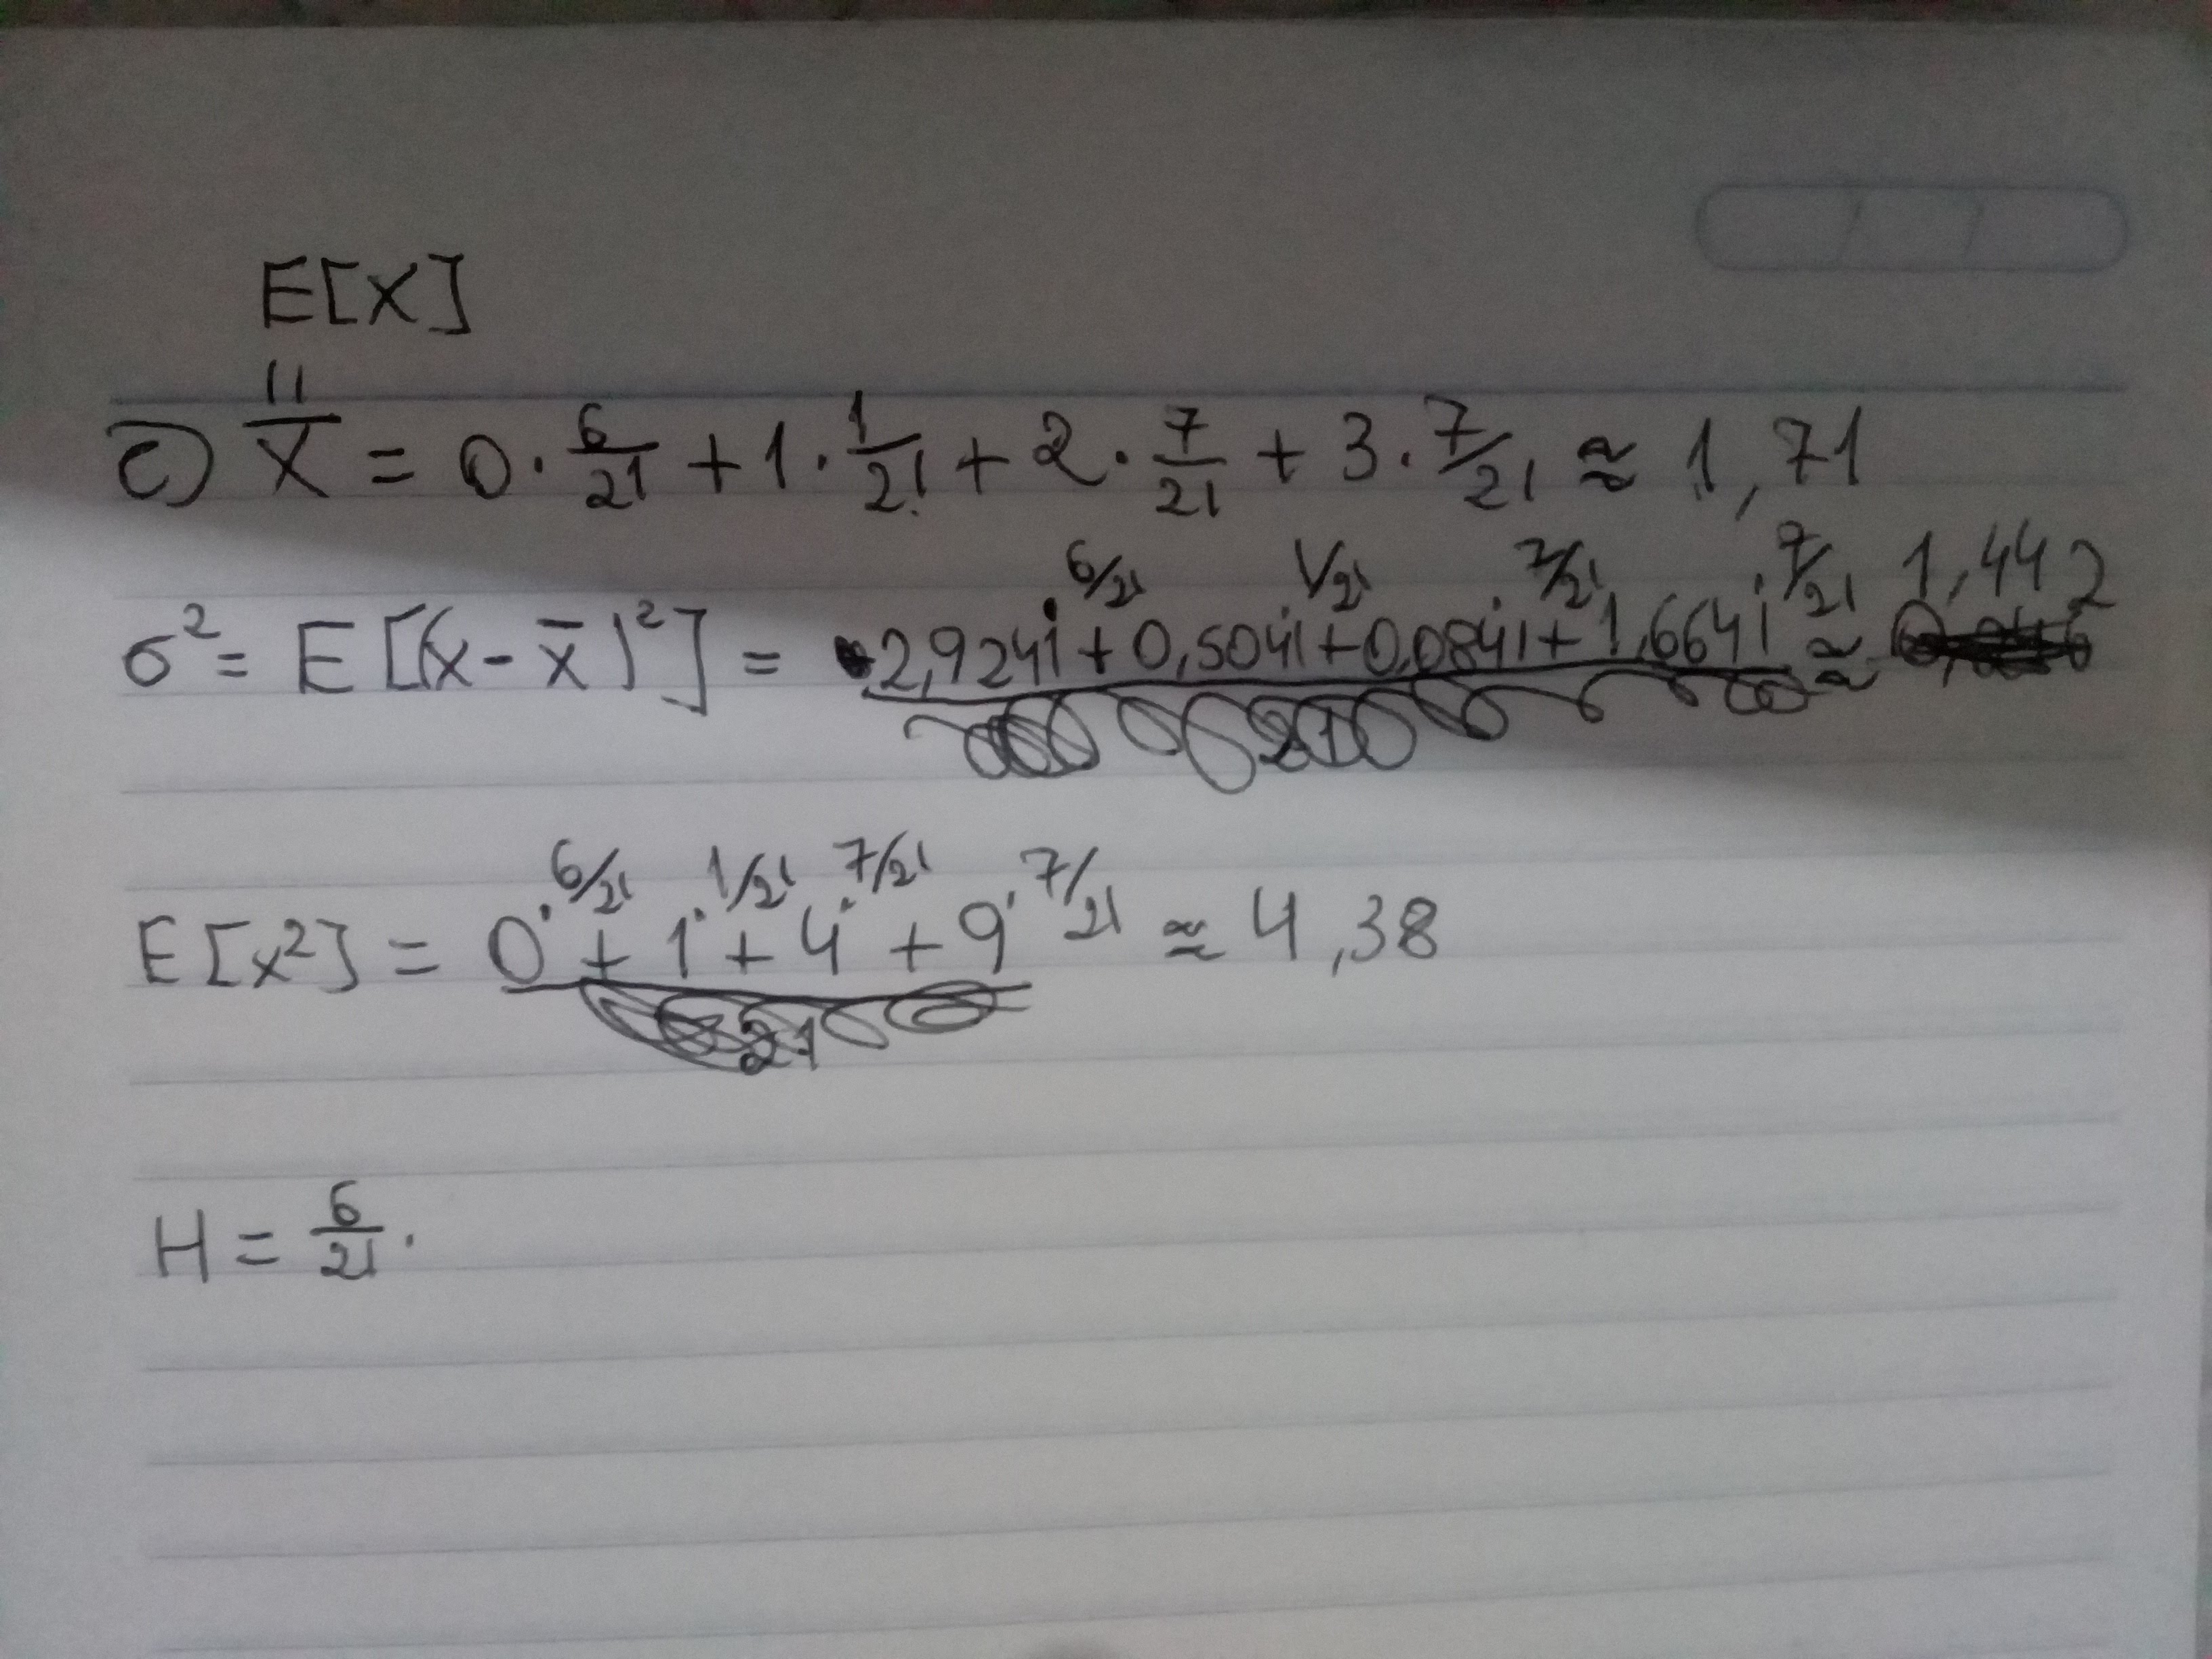 E[X]
=
c) X̄ = 0 · 6/21 + 1 · 1/21 + 2 · 7/21 + 3 · 7/21 ≈ 1,71
σ² = E[(x - x̄)²] = 2,9241 · 6/21 + 0,5041 · 1/21 + 0,0841 · 7/21 + 1,6641 · 7/21 ≈ 1,442
21
E[x²] = 0 · 6/21 + 1 · 1/21 + 4 · 7/21 + 9 · 7/21 ≈ 4,38
21
H = 6/21 ·